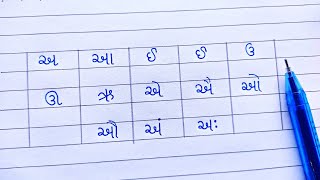 અ આ ઈ ઈ ઉ
ઊ ઋ એ ઐ ઓ
ઔ અં અઃ